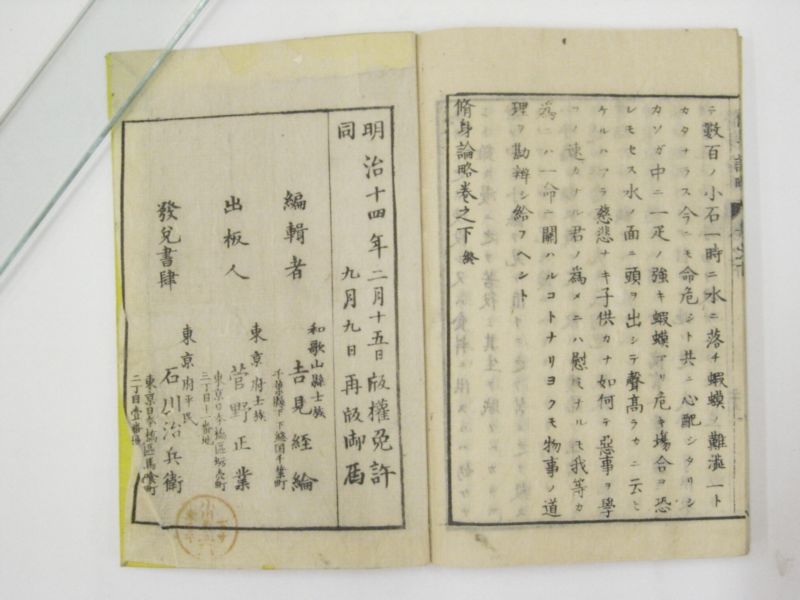 テ數百ノ小石一時ニ水ニ落チ蝦蟆ノ難澁一ト
カタナラス今ニモ命危シト共ニ心配シタリシ
カソガ中ニ一疋ノ強キ蝦蟆アリ危キ塲合ヲ恐
レモセス水ノ面ニ頭ヲ出シテ聲髙ラカニ云ヒ
ケルハアラ慈悲ナキ子供カナ如何テ惡事ヲ學
コノ速カナル君ノ為メニハ慰ミナルモ我等カ
為ニハ一命ニ關ハルコトナリヨクモ物事ノ道
理ヲ勘辨シ給フヘシト
脩身論略卷之下 終
明治十四年二月十五日版權免許
同 九月九日再版御届
編輯者
和歌山縣士族
吉見經綸
千葉縣下下總國千葉町
出板人
東京府士族
菅野正業
東京日本橋區蛎売町
三丁目十一番地
發兌書肆
東京府平民
石川治兵衛
東京日本橋區馬喰町
二丁目壹番地